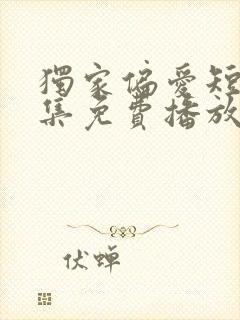 獨家偏愛短
集免費播放
伏蝉